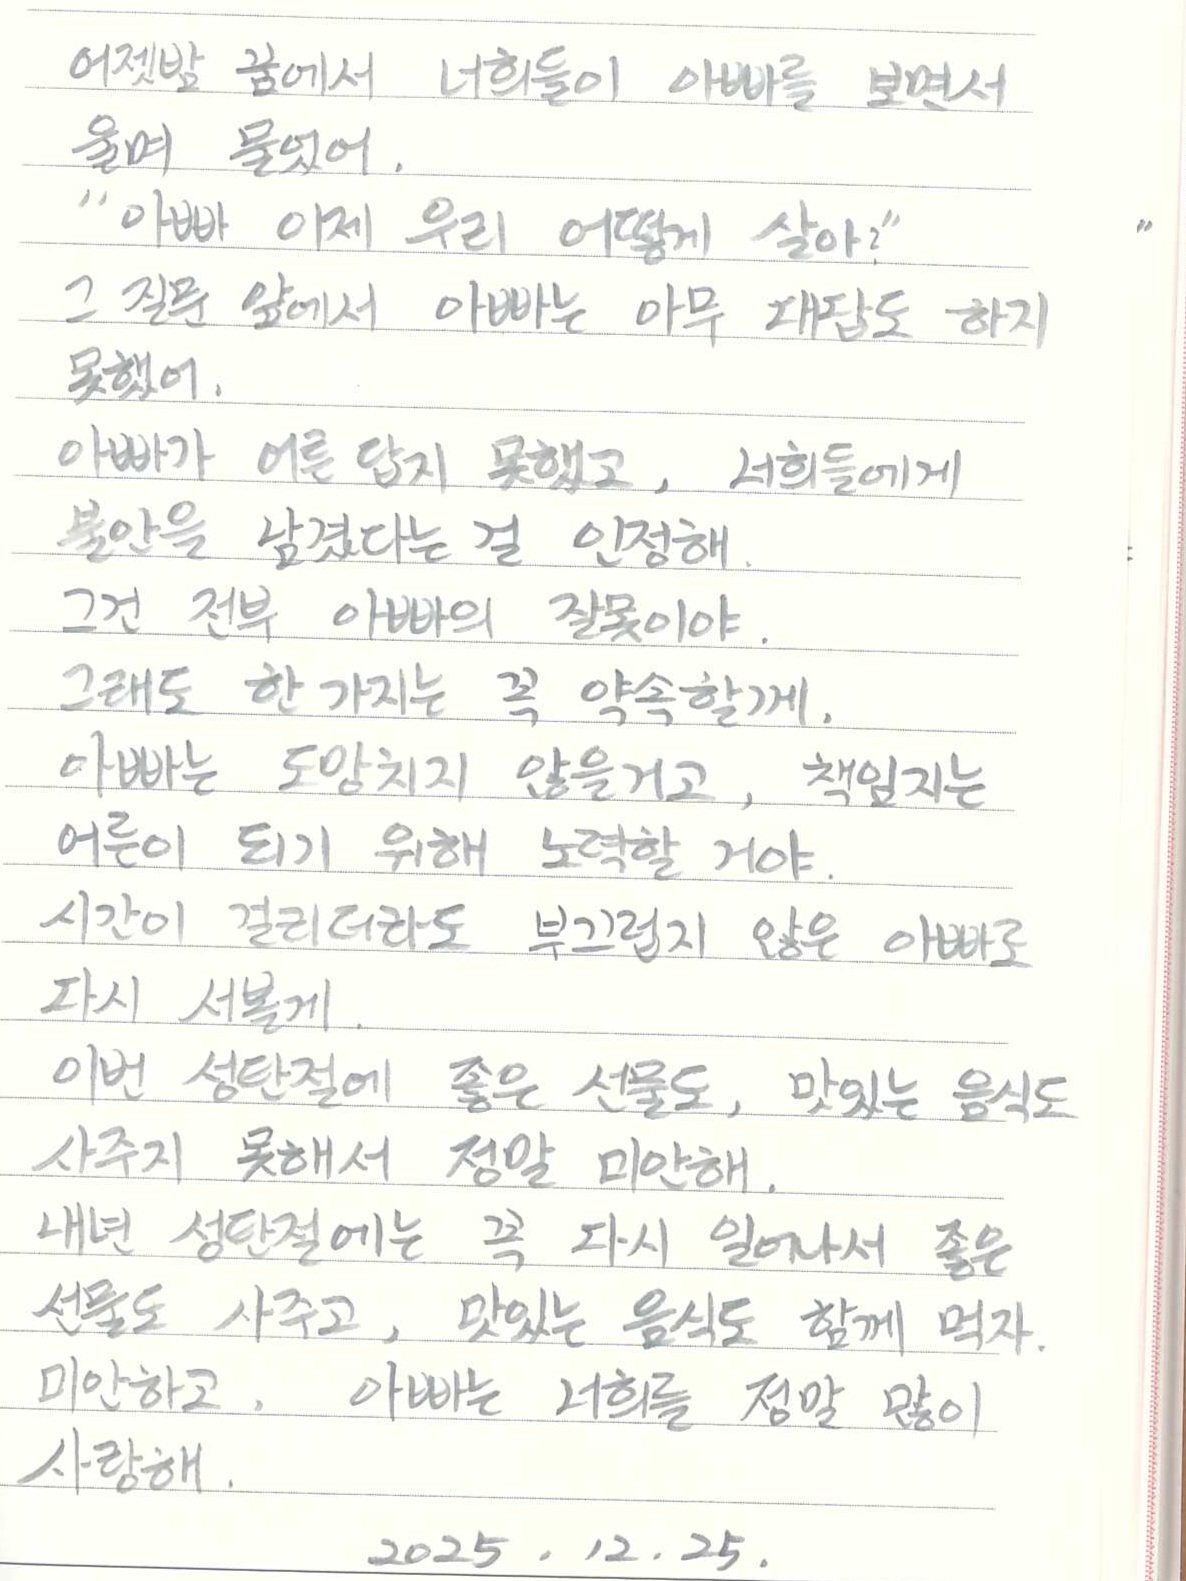 어젯밤 꿈에서 너희들이 아빠를 보면서
울며 물었어.
"아빠 이제 우리 어떻게 살아?"
그 질문 앞에서 아빠는 아무 대답도 하지
못했어.
아빠가 어른 답지 못했고, 너희들에게
불안을 남겼다는 걸 인정해.
그건 전부 아빠의 잘못이야.
그래도 한 가지는 꼭 약속할께.
아빠는 도망치지 않을거고, 책임지는
어른이 되기 위해 노력할 거야.
시간이 걸리더라도 부끄럽지 않은 아빠로
다시 서볼게.
이번 성탄절에 좋은 선물도, 맛있는 음식도
사주지 못해서 정말 미안해.
내년 성탄절에는 꼭 다시 일어나서 좋은
선물도 사주고, 맛있는 음식도 함께 먹자.
미안하고, 아빠는 너희를 정말 많이
사랑해.
2025. 12. 25.